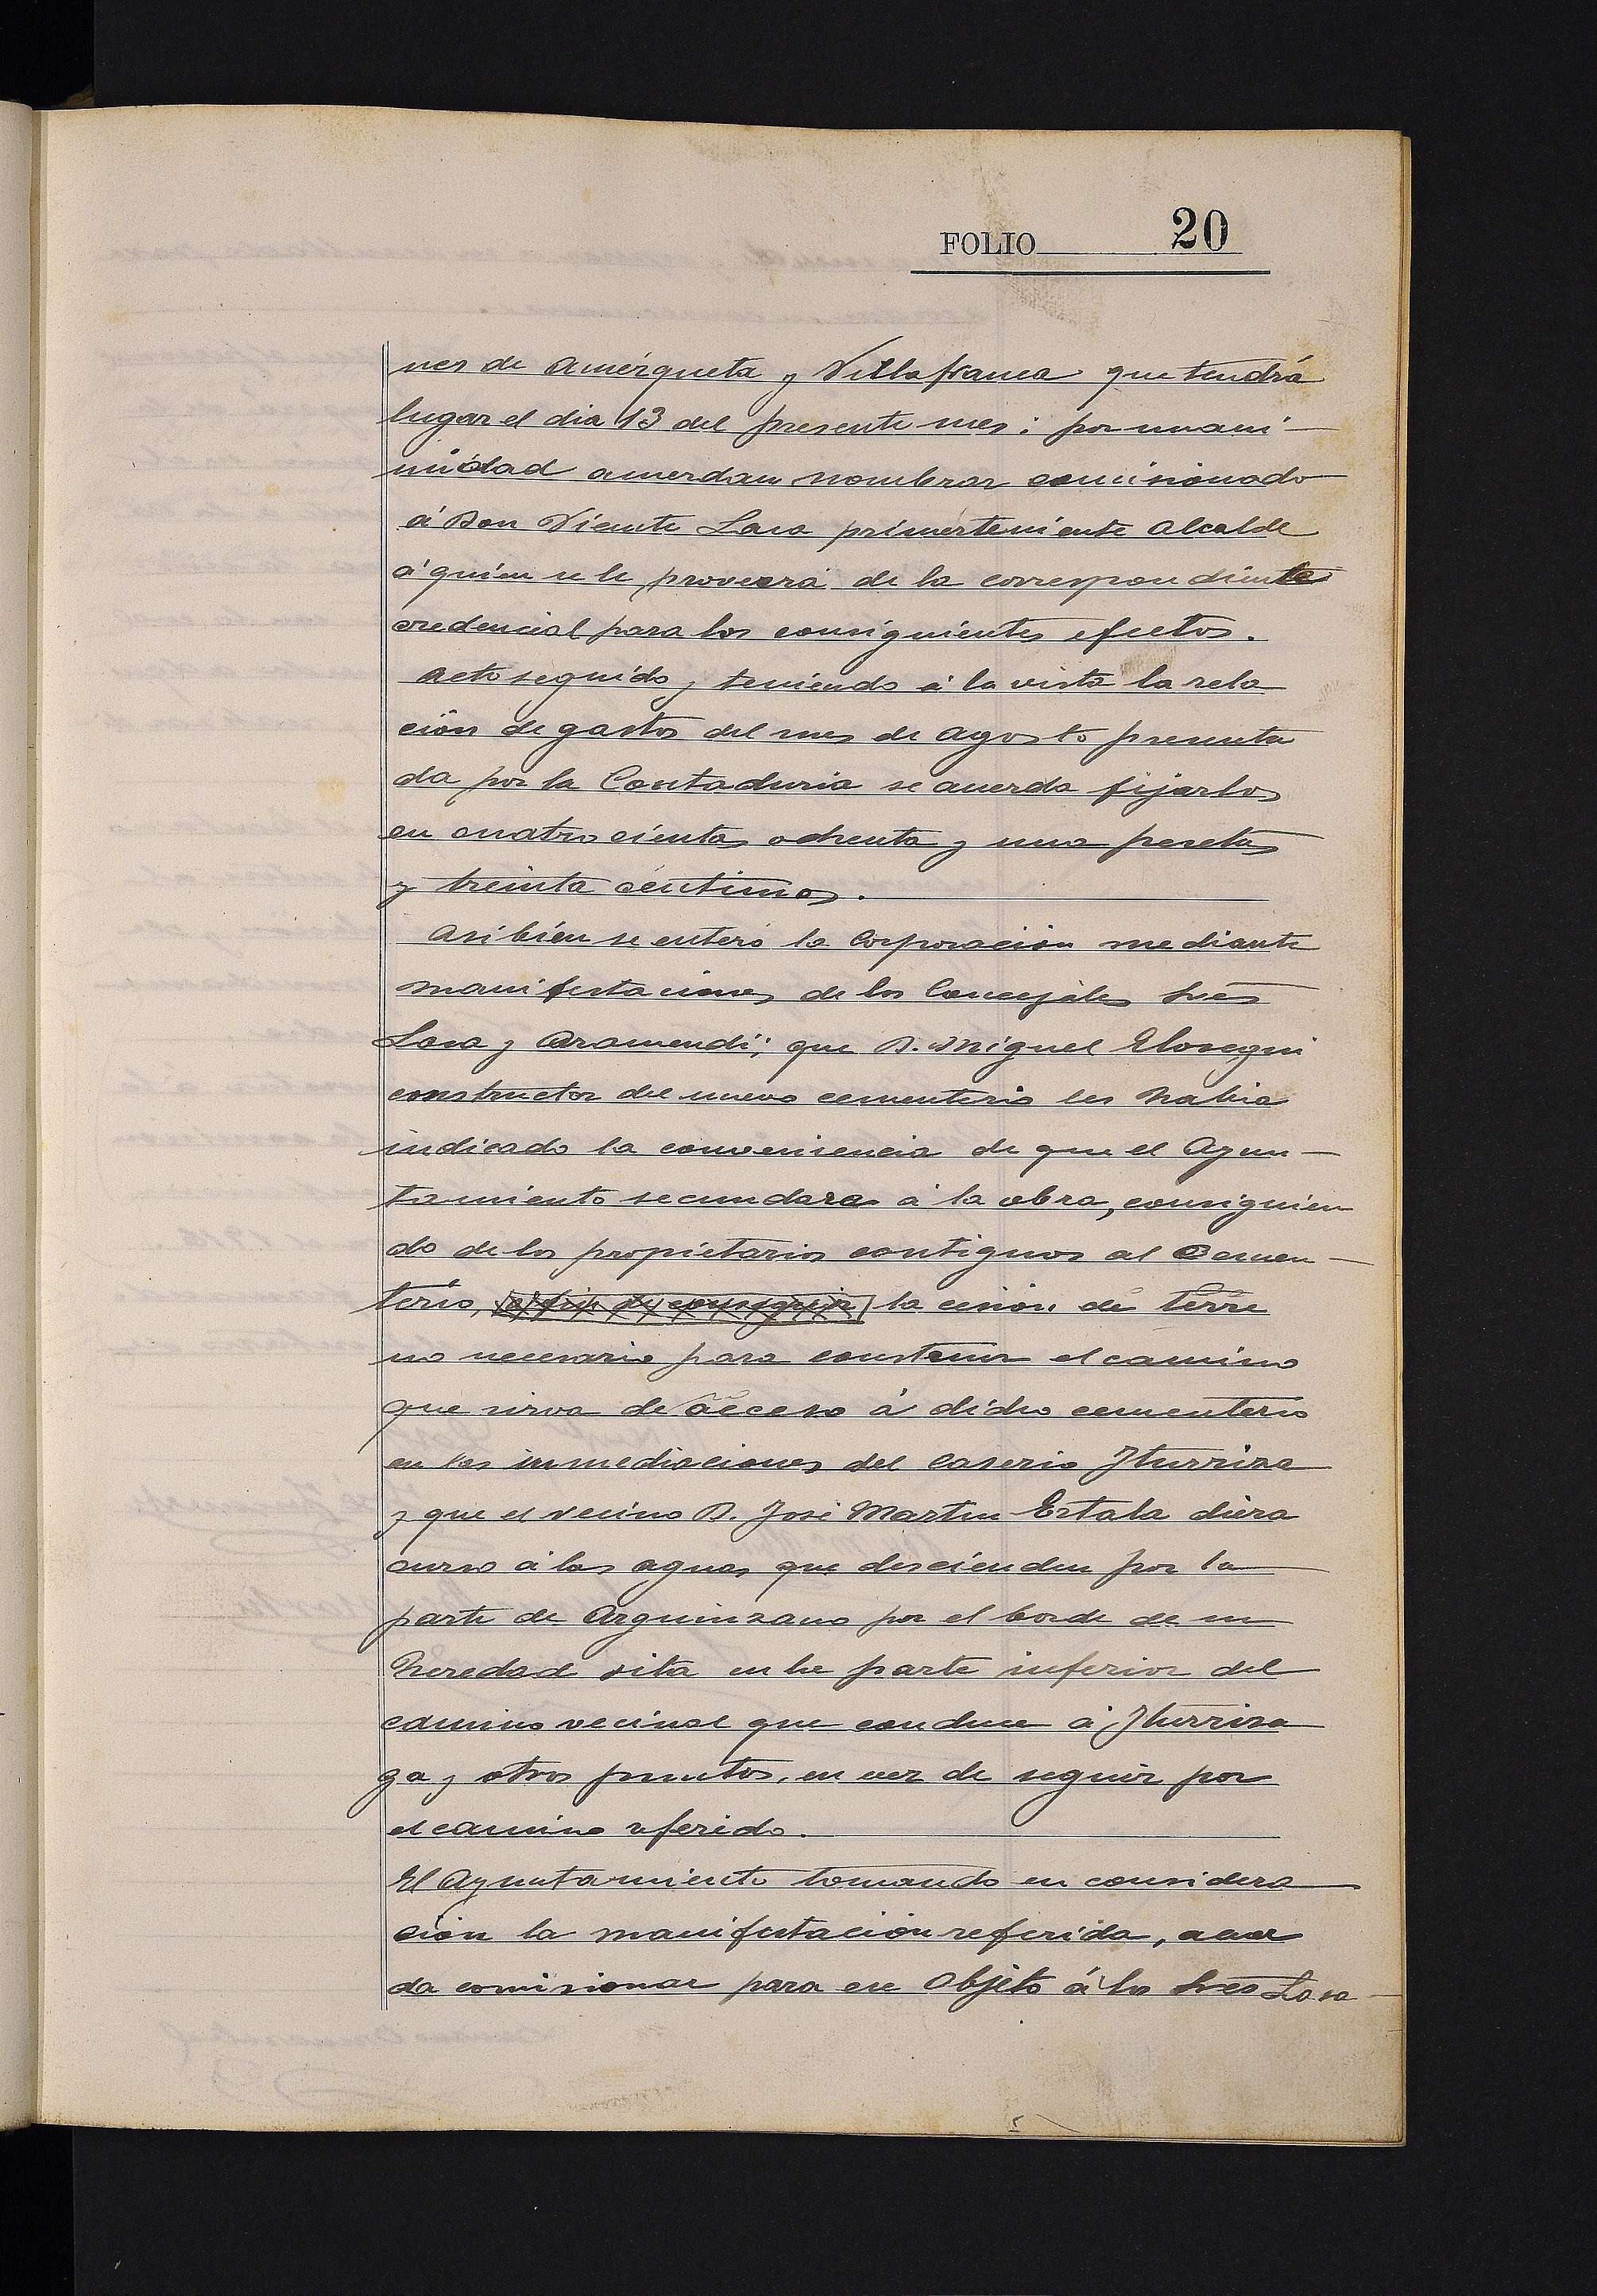 FOLIO 20
nes de Amézqueta y Villafranca que tendrá
lugar el dia 13 del presente mes; por unani-
midad acuerdan nombrar comisionado
á Don Vicente Lasa primerteniente Alcalde
á quien se le proveerá de la correspondiente
credencial para los consiguientes efectos.
Acto seguido, teniendo á la vista la rela
ción de gastos del mes de Agosto presenta
da por la Contaduria se acuerda fijarlos
en cuatro cientas ochenta y una pesetas
y treinta céntimos.
Asi bién se enteró la Corporación mediante
manifestaciones de los Concejales Sres
Lasa y Aramendi; que D. Miguel Elosegui
constructor del nuevo cementerio les habia
indicado la conveniencia de que el Ayun-
tamiento secundara á la obra, consiguien
do de los propietarios contiguos al Cemen-
terio, a fin de conseguir la cesión de terre
no necesario para construir el camino
que sirva de acceso á dicho cementerio
en las inmediaciones del Caserio Iturriza
y que el vecino D. José Martin Estala diera
curso á las aguas que descienden por la
parte de Arguinzano por el borde de su
heredad sita en la parte inferior del
camino vecinal que conduce á Iturriza
ga y otros puntos, en vez de seguir por
el camino referido.
El Ayuntamiento tomando en considera
ción la manifestación referida, acuer
da comisionar para ese objeto á los Sres Lasa